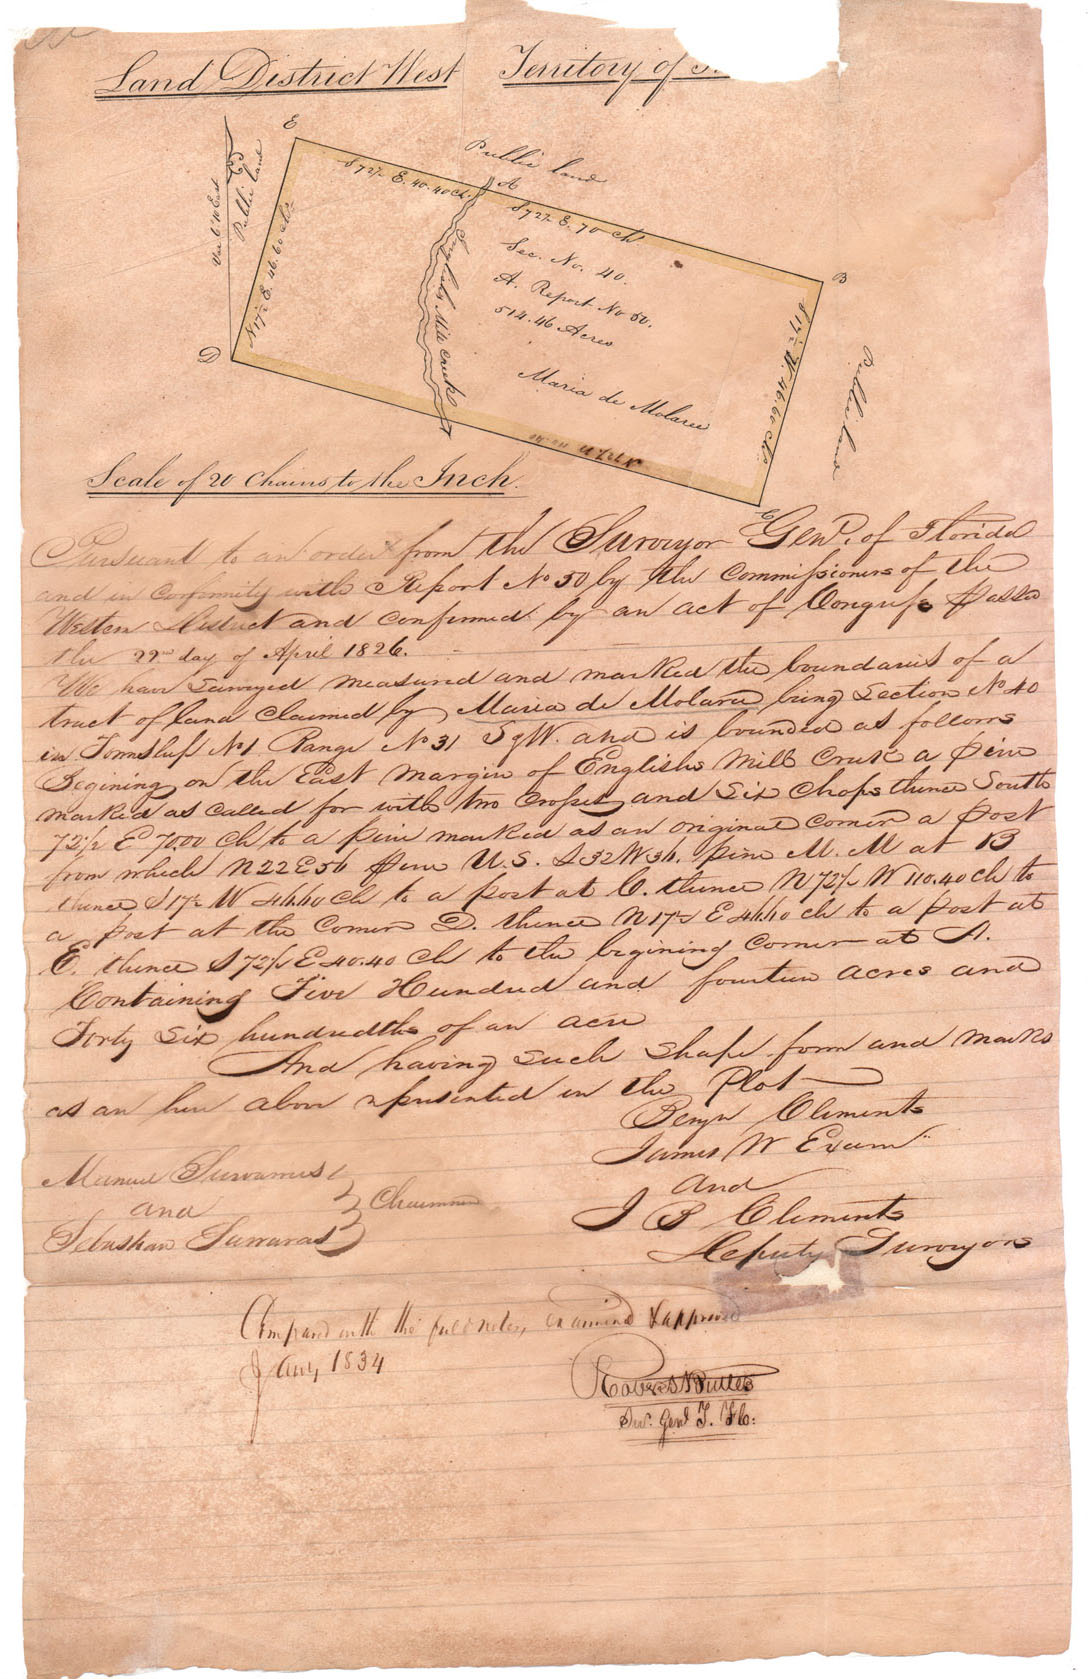 Land District West Territory of
E
Public land
A
S 72½ E. 40.40 ch.
S 72½ E. 70 ch
Var 6° 10' East
Public land
N 17½ E. 46.60 chs
Englishs Mill Creek
Sec. No. 40.
A. Report No 50.
514.46 Acres
Maria de Molare
B
S 17½ W. 46.60 chs
Public land
D
C
Scale of 20 Chains to the Inch.
Pursuant to an order from the Surveyor Genl. of Florida
and in conformity with Report No 50 by the Commissioners of the
Western District and confirmed by an act of Congress passed
the 22nd day of April 1826.
We have surveyed measured and marked the boundaries of a
tract of land claimed by Maria de Molare being Section No 40
in Township No 1 Range No 31 S & W. and is bounded as follows
Begining on the East margin of Englishs Mill Creek a pine
marked as called for with two crosses and six chops thence South
72½ E 70.00 ch to a pine marked as an original corner a post
from which N 22 E 56 pine U.S. S 32 W 36. pine M. M at B
thence S 17½ W 46.60 ch to a post at C. thence N 72½ W 110.40 ch to
a post at the corner D. thence N 17½ E 46.60 ch to a post at
E. thence S 72½ E 40.40 ch to the begining corner at A.
Containing Five Hundred and fourteen acres and
Forty Six hundredths of an acre
And having such shape form and marks
as are here above represented in the Plot
Benjn Clements
James W Exum
and
J B Clements
Deputy Surveyors
Manuel
and
Sebastian
Chainmen
Compared with the field notes, examined & approved
Jany 1834
Robert Butler
Sur. Genl T. Fla: